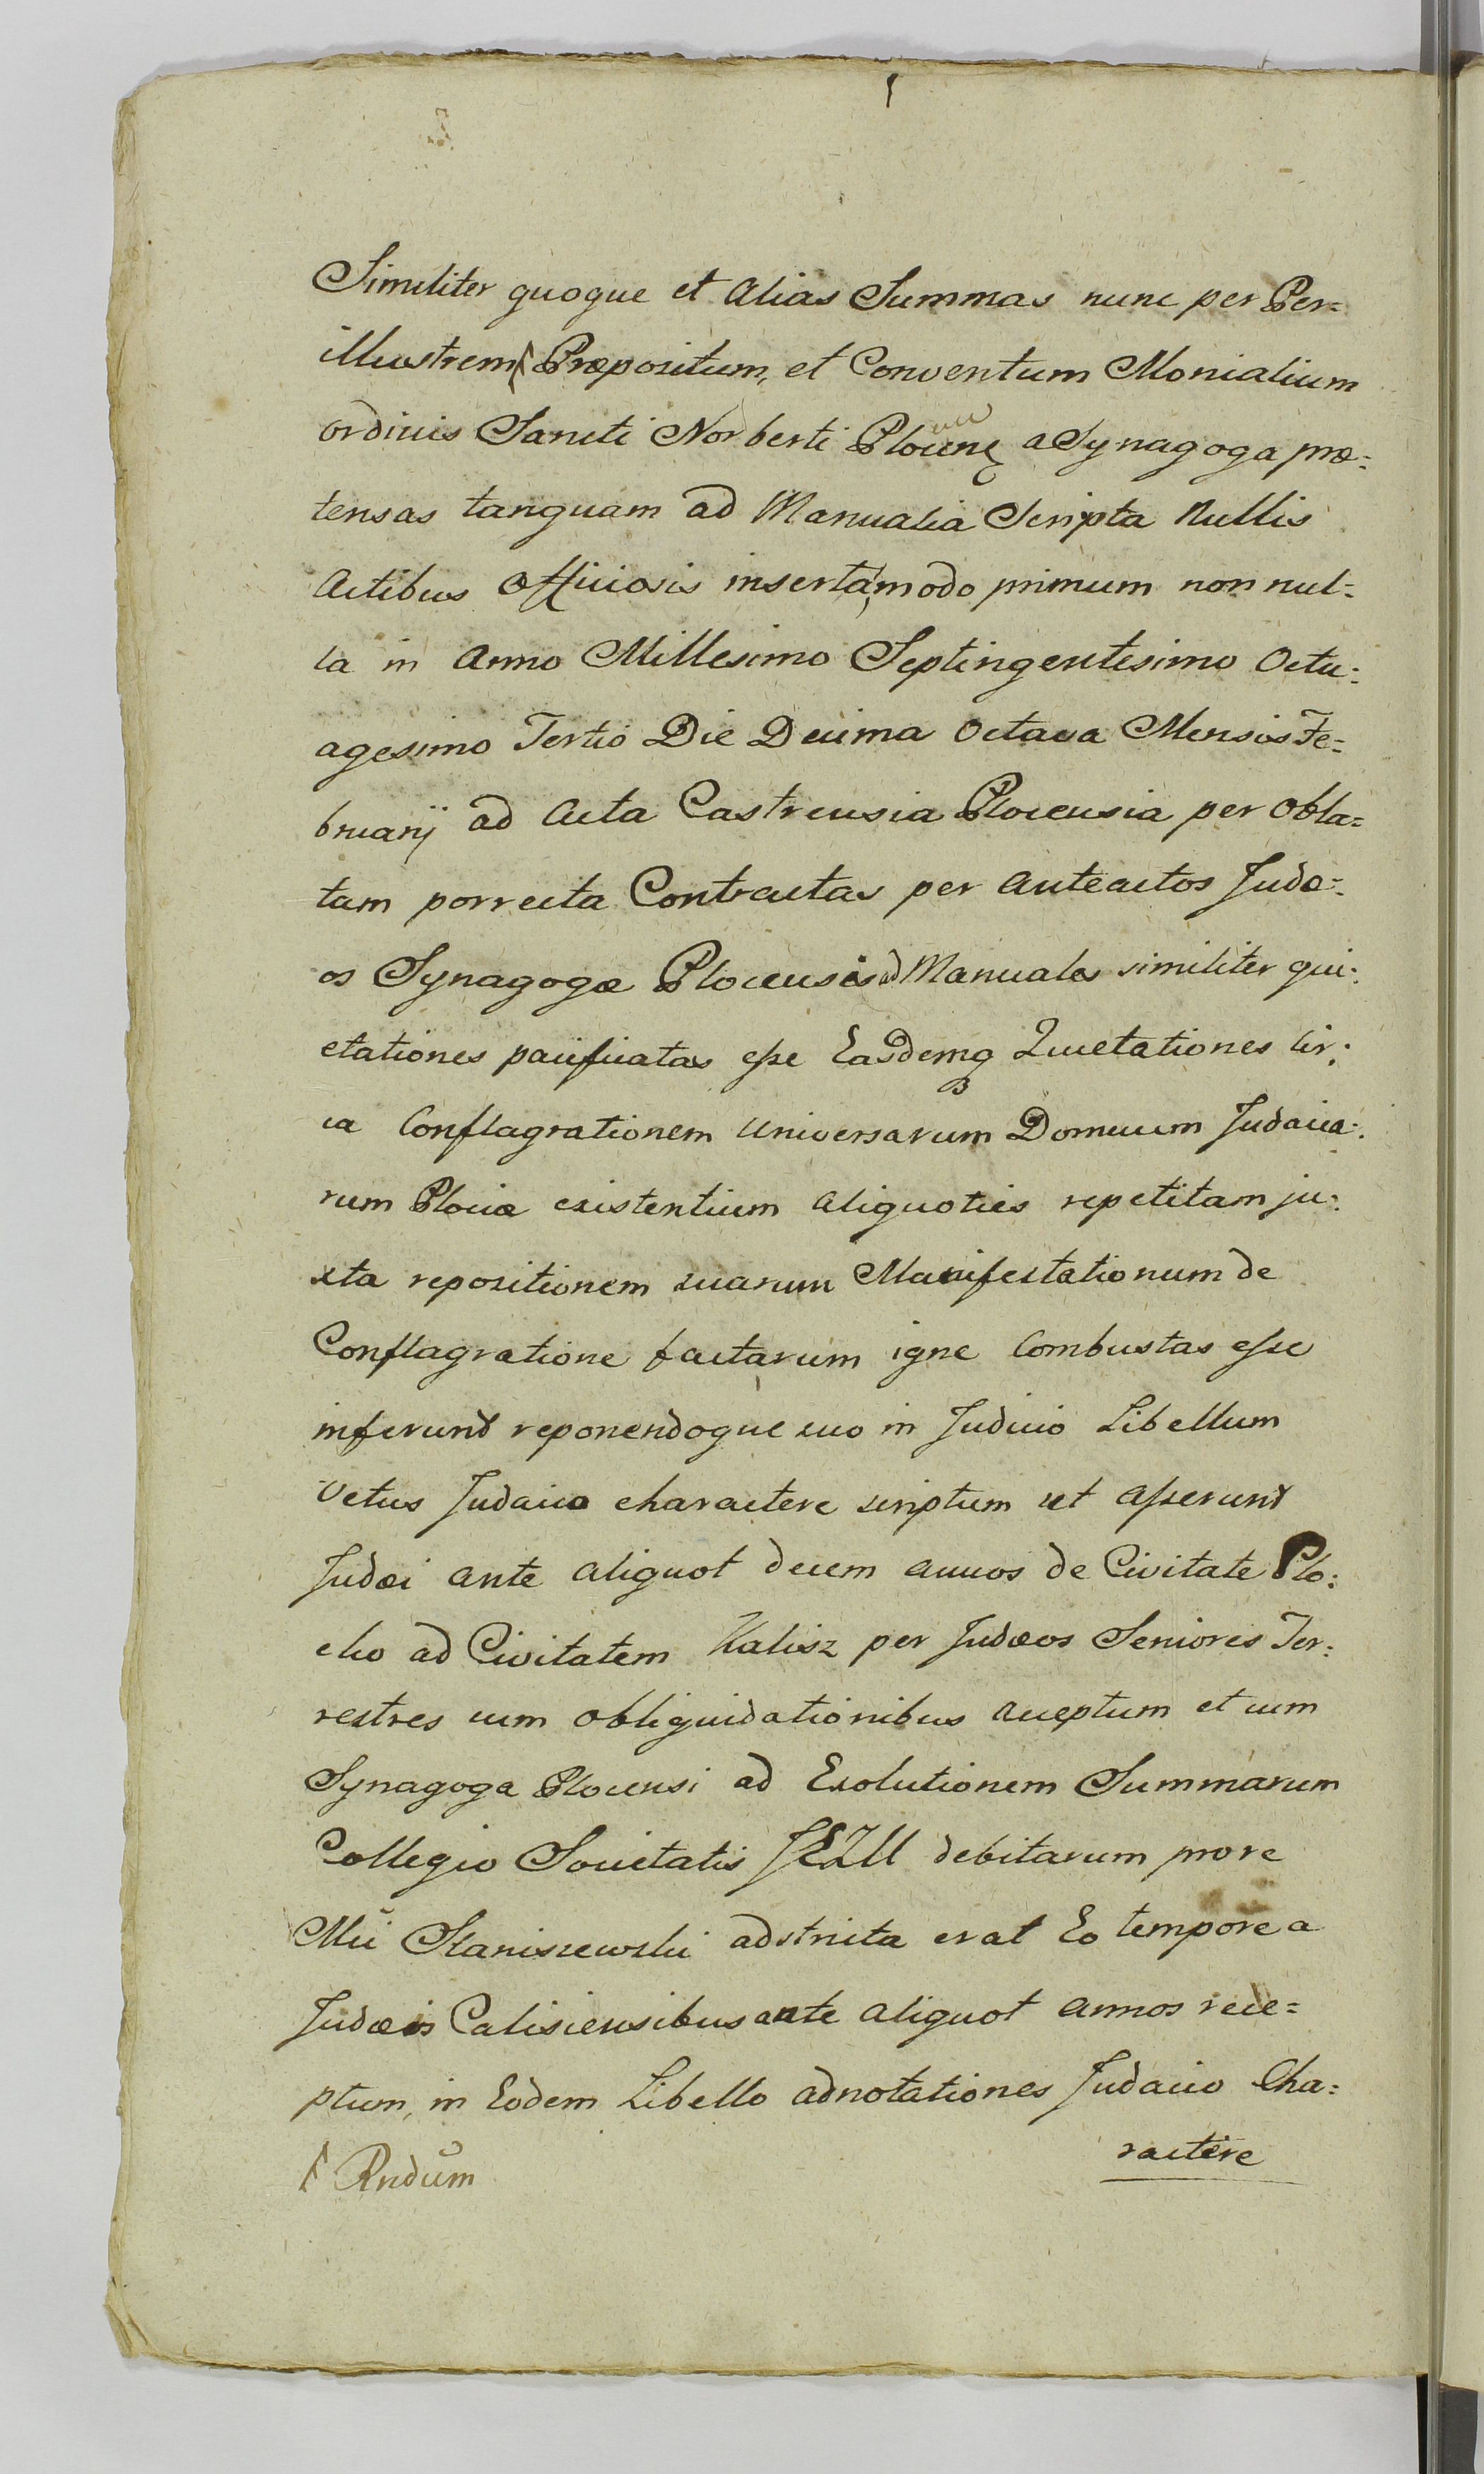 Similiter quoque et Alias Summas nunc per Per=
illustrem Præpositum, et Conventum Monialium
ordinis Sancti Norberti Plocen̄ę a Synagoga præ=
tensas tanquam ad Manualia Scripta Nullis
Actibus Officiosis inserta, modo primum non nul=
la in Anno Millesimo Septingentesimo Octu=
agesimo Tertio Die Decima Octava Mensis Fe=
bruarij ad Acta Castrensia Plocensia per Obla=
tam porrecta Contractas per anteactos Judæ=
os Synagogæ Plocensis ad Manuales similiter qui=
etationes pacificatas esse Easdemq Quietationes cir=
ca Conflagrationem Universarum Domuum Judaica=
rum Plociæ existentium aliquoties repetitam ju=
xta repositionem suarum Manifestationum de
Conflagratione factarum igne Combustas esse
inferunt reponendoque suo in Judicio Libellum
Vetus Judaico charactere scriptum ut asserunt
Judæi ante aliquot decem annos de Civitate Plo=
cko ad Civitatem Kalisz per Judæos Seniores Ter=
restres cum obliquidationibus acceptum et cum
Synagoga Plocensi ad Exolutionem Summarum
Collegio Societatis JEZU debitarum more
Mci Staniszewski adstricta erat Eo tempore a
Judæis Calisiensibus ante aliquot annos rece=
ptum, in Eodem Libello adnotationes Judaico Cha=
ractere
Rndūm